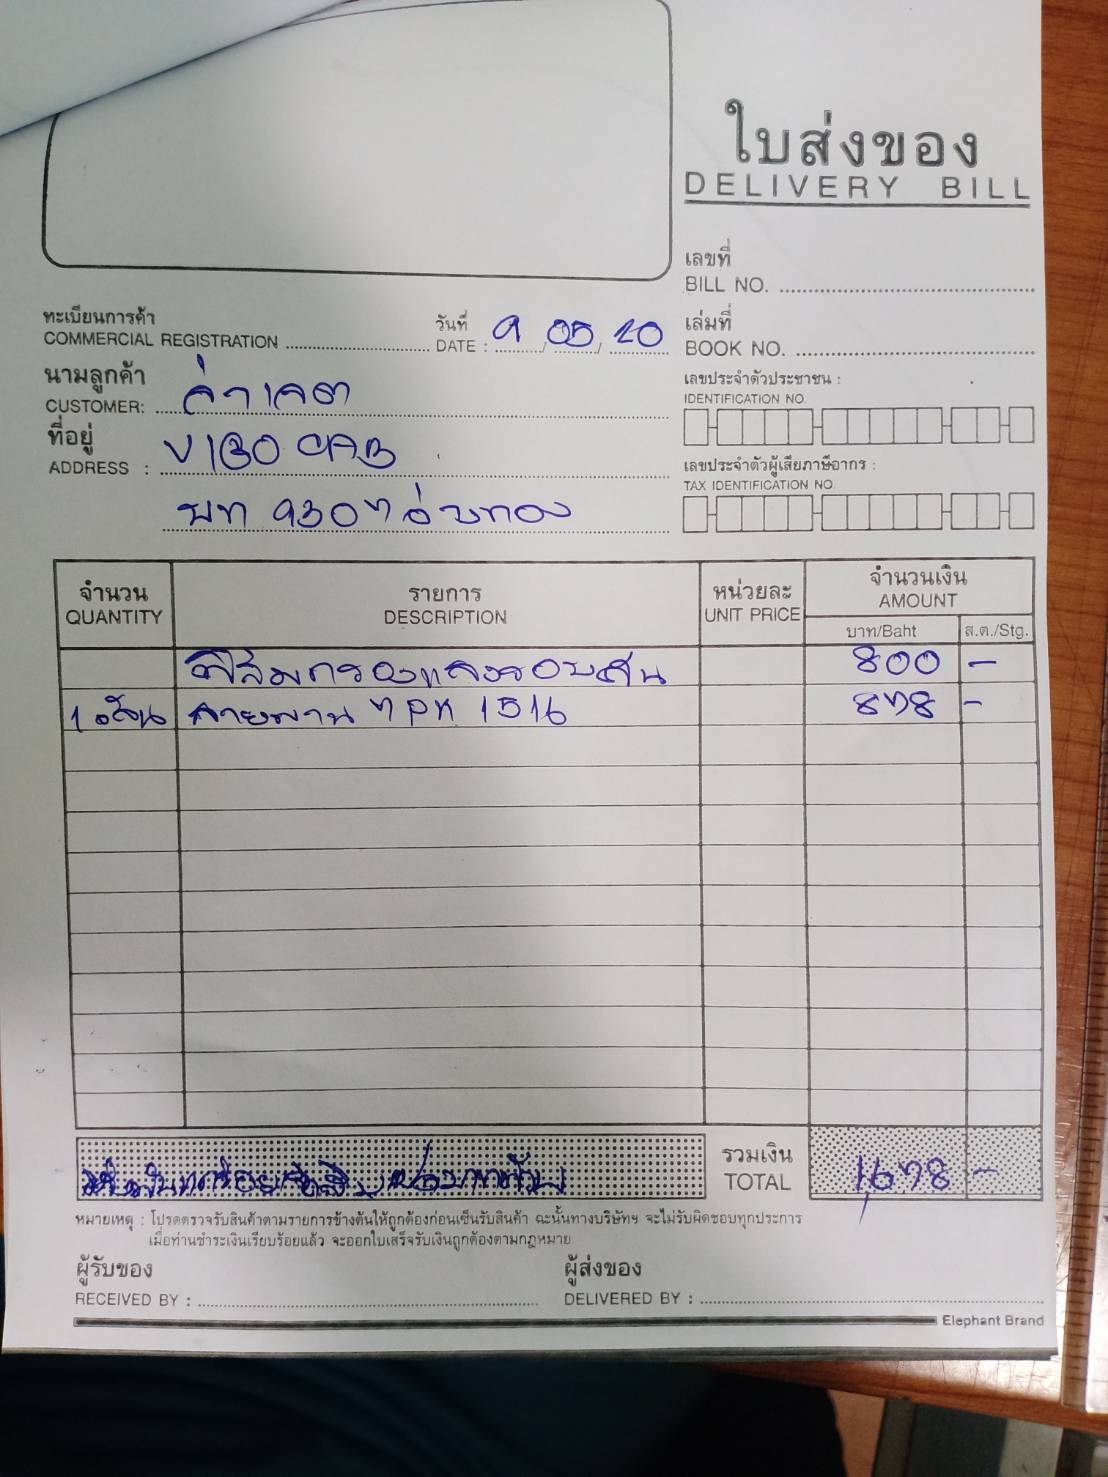 ใบส่งของ
DELIVERY BILL
เลขที่
BILL NO.
ทะเบียนการค้า
COMMERCIAL REGISTRATION
วันที่
DATE : 9 / 05 / 20
เล่มที่
BOOK NO.
นามลูกค้า
CUSTOMER:
เลขประจำตัวประชาชน :
IDENTIFICATION NO.
ที่อยู่
ADDRESS : V160 CAB
บท 9307 อ่างทอง
เลขประจำตัวผู้เสียภาษีอากร :
TAX IDENTIFICATION NO.
จำนวน รายการ หน่วยละ จำนวนเงิน
QUANTITY DESCRIPTION UNIT PRICE AMOUNT
บาท/Baht ส.ต./Stg.
ฟิล์มกรองแสงรอบคัน 800 -
1 เส้น สายพาน 7 PK 1516 878 -
หนึ่งพันหกร้อยเจ็ดสิบแปดบาทถ้วน
รวมเงิน
TOTAL 1,678 -
หมายเหตุ : โปรดตรวจรับสินค้าตามรายการข้างต้นให้ถูกต้องก่อนเซ็นรับสินค้า ฉะนั้นทางบริษัทฯ จะไม่รับผิดชอบทุกประการ
เมื่อท่านชำระเงินเรียบร้อยแล้ว จะออกใบเสร็จรับเงินถูกต้องตามกฎหมาย
ผู้รับของ
RECEIVED BY :
ผู้ส่งของ
DELIVERED BY :
Elephant Brand